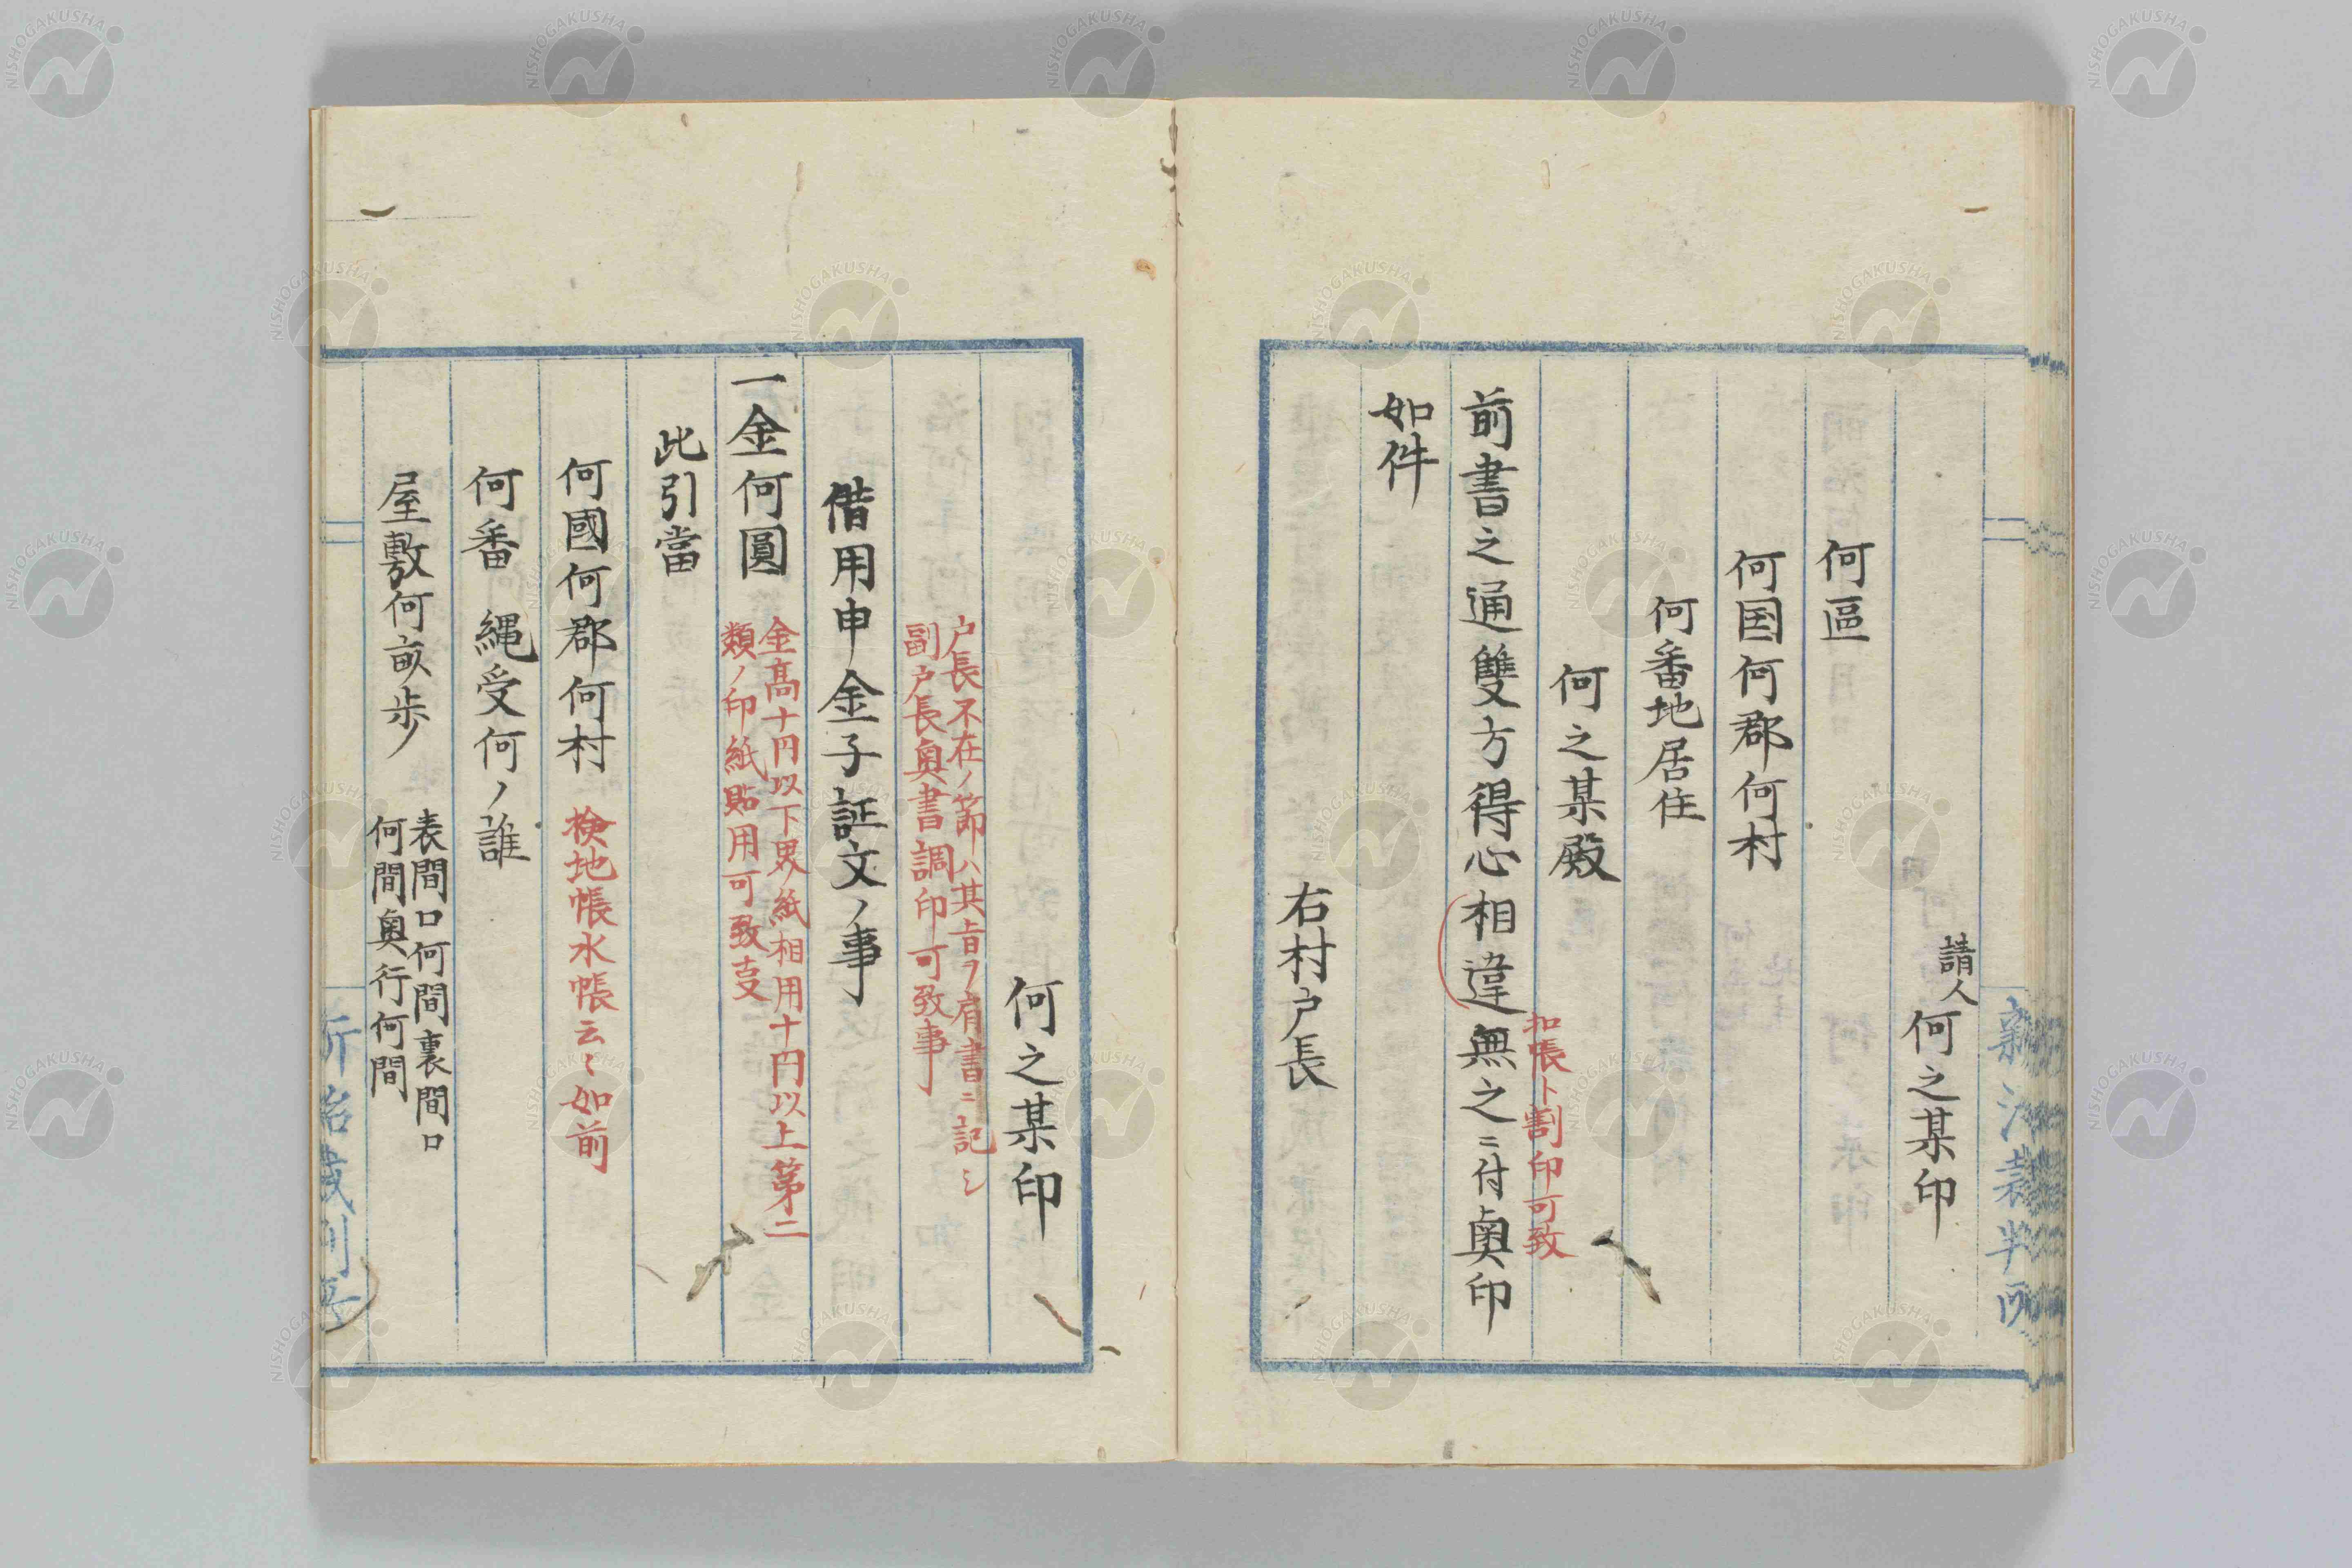 請人 何之某印
何區
何国何郡何村
何番地居住
何之某殿
扣帳ト割印可致
前書之通雙方得心相違無之ニ付奥印
如件
右村戸長
何之某印
戸長不在ノ節ハ其旨ヲ肩書ニ記シ
副戸長奥書調印可致事
借用申金子証文ノ事
一金何圓
金高十円以下界紙相用十円以上第二
類ノ印紙貼用可致支
此引當
何國何郡何村 検地帳水帳云々如前
何番 縄受何ノ誰
屋敷何畝歩
表間口何間裏間口
何間奥行何間
NISHOGAKUSHA